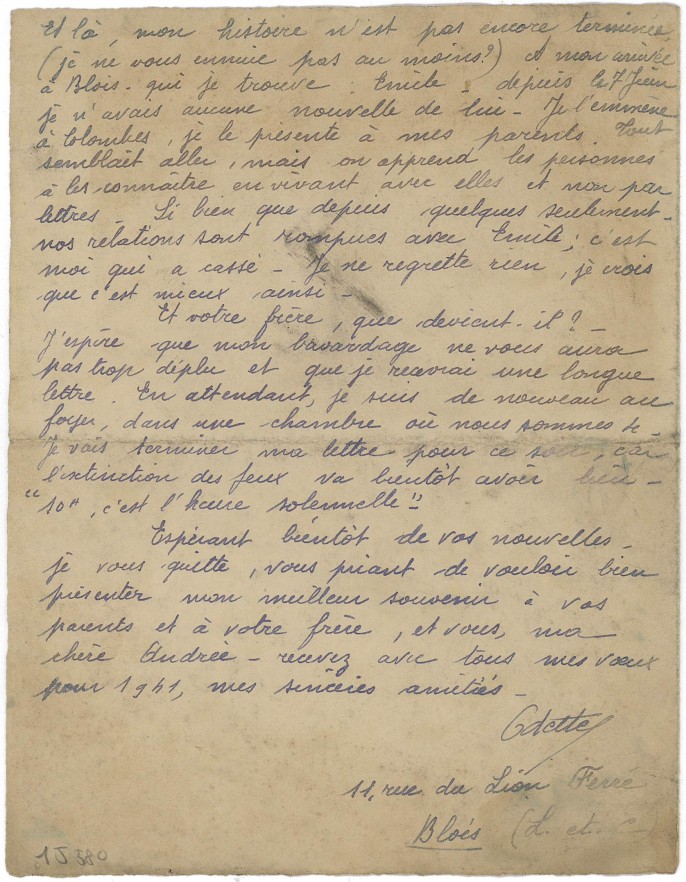 Et là, mon histoire n'est pas encore terminée.
(je ne vous ennuie pas au moins?) A mon arrivée
à Blois - qui je trouve. Emile - depuis le 7 Juin
je n'avais aucune nouvelle de lui - Je l'emmène
à Colombes, je le présente à mes parents. Tout
semblait aller, mais on apprend les personnes
à les connaître en vivant avec elles et non par
lettres - Si bien que depuis quelques seulement -
nos relations sont rompues avec Emile; c'est
moi qui a cassé - Je ne regrette rien, je crois
que c'est mieux ainsi -
Et votre frère, que devient-il? -
J'espère que mon bavardage ne vous aura
pas trop déplu et que je recevrai une longue
lettre. En attendant, je suis de nouveau au
foyer, dans une chambre où nous sommes 4 -
Je vais terminer ma lettre pour ce soir, car
l'extinction des feux va bientôt avoir lieu -
"10H, c'est l'heure solennelle"
Espérant bientôt de vos nouvelles -
je vous quitte, vous priant de vouloir bien
présenter mon meilleur souvenir à vos
parents et à votre frère, et vous, ma
chère Andrée - recevez avec tous mes vœux
pour 1941, mes sincères amitiés -
Odette
11, rue du Lion Ferré
Blois (L. et C.)
1J580